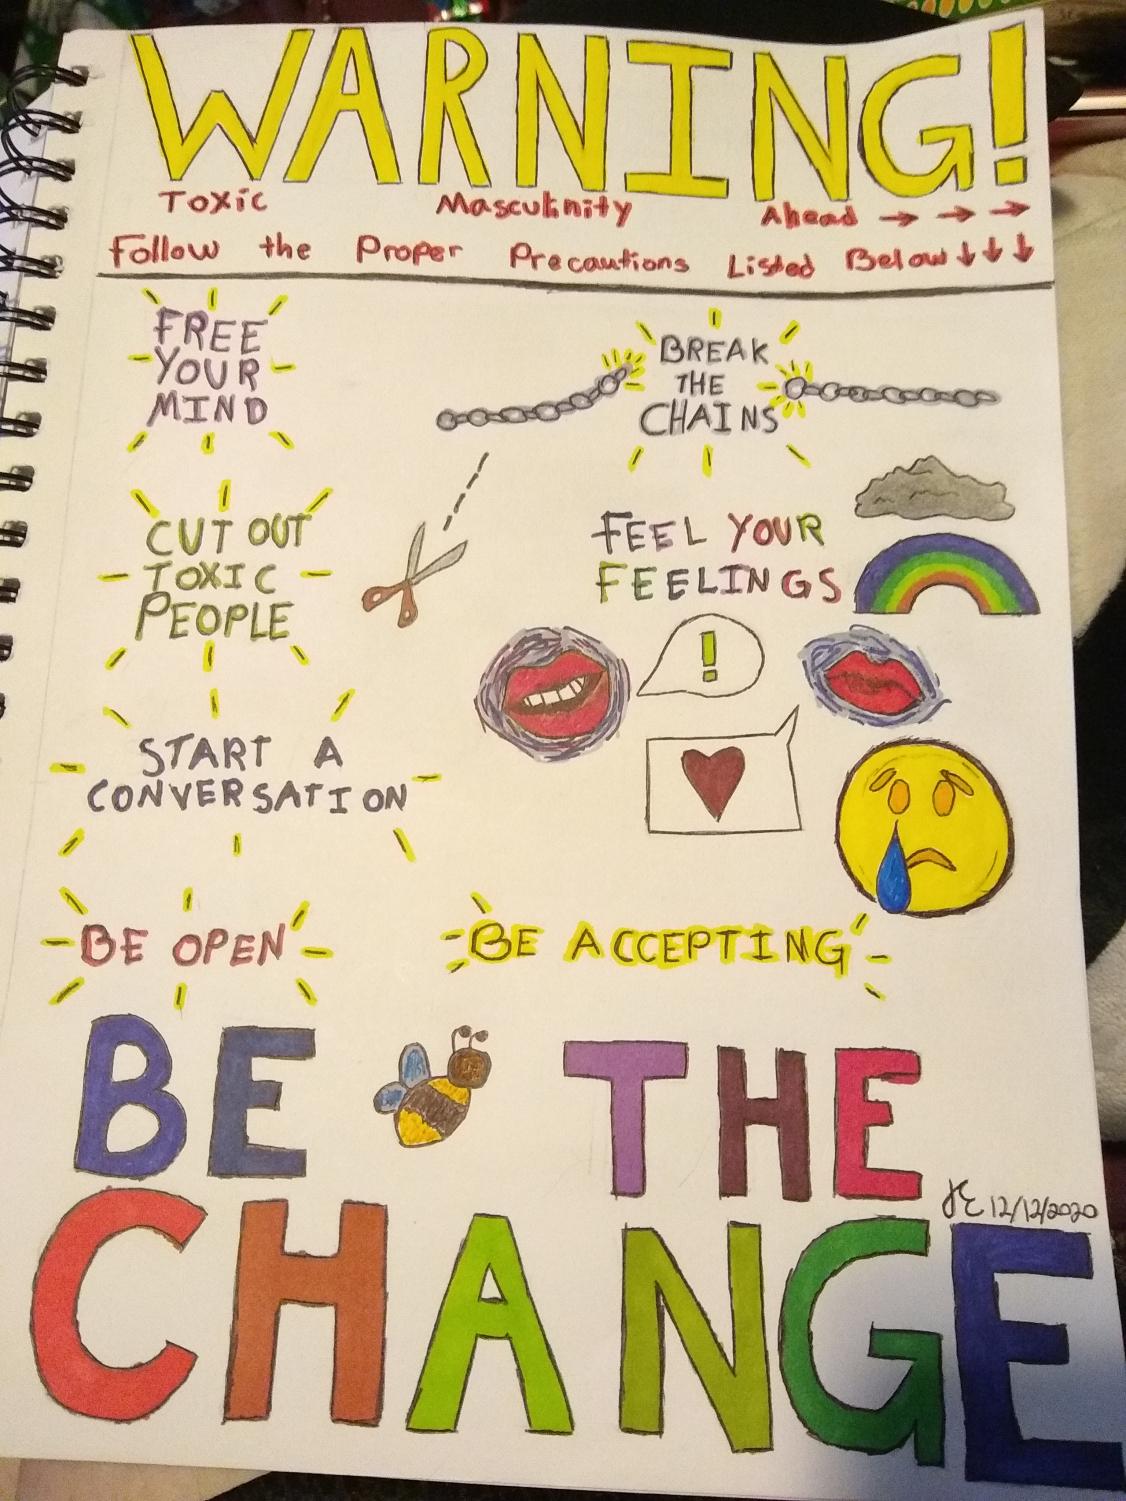 WARNING!
Toxic Masculinity Ahead → → →
Follow the Proper Precautions Listed Below ↓ ↓ ↓
FREE
YOUR
MIND
BREAK
THE
CHAINS
CUT OUT
TOXIC
PEOPLE
FEEL YOUR
FEELINGS
!
START A
CONVERSATION
BE OPEN
BE ACCEPTING
BE THE
JE 12/12/2020
CHANGE